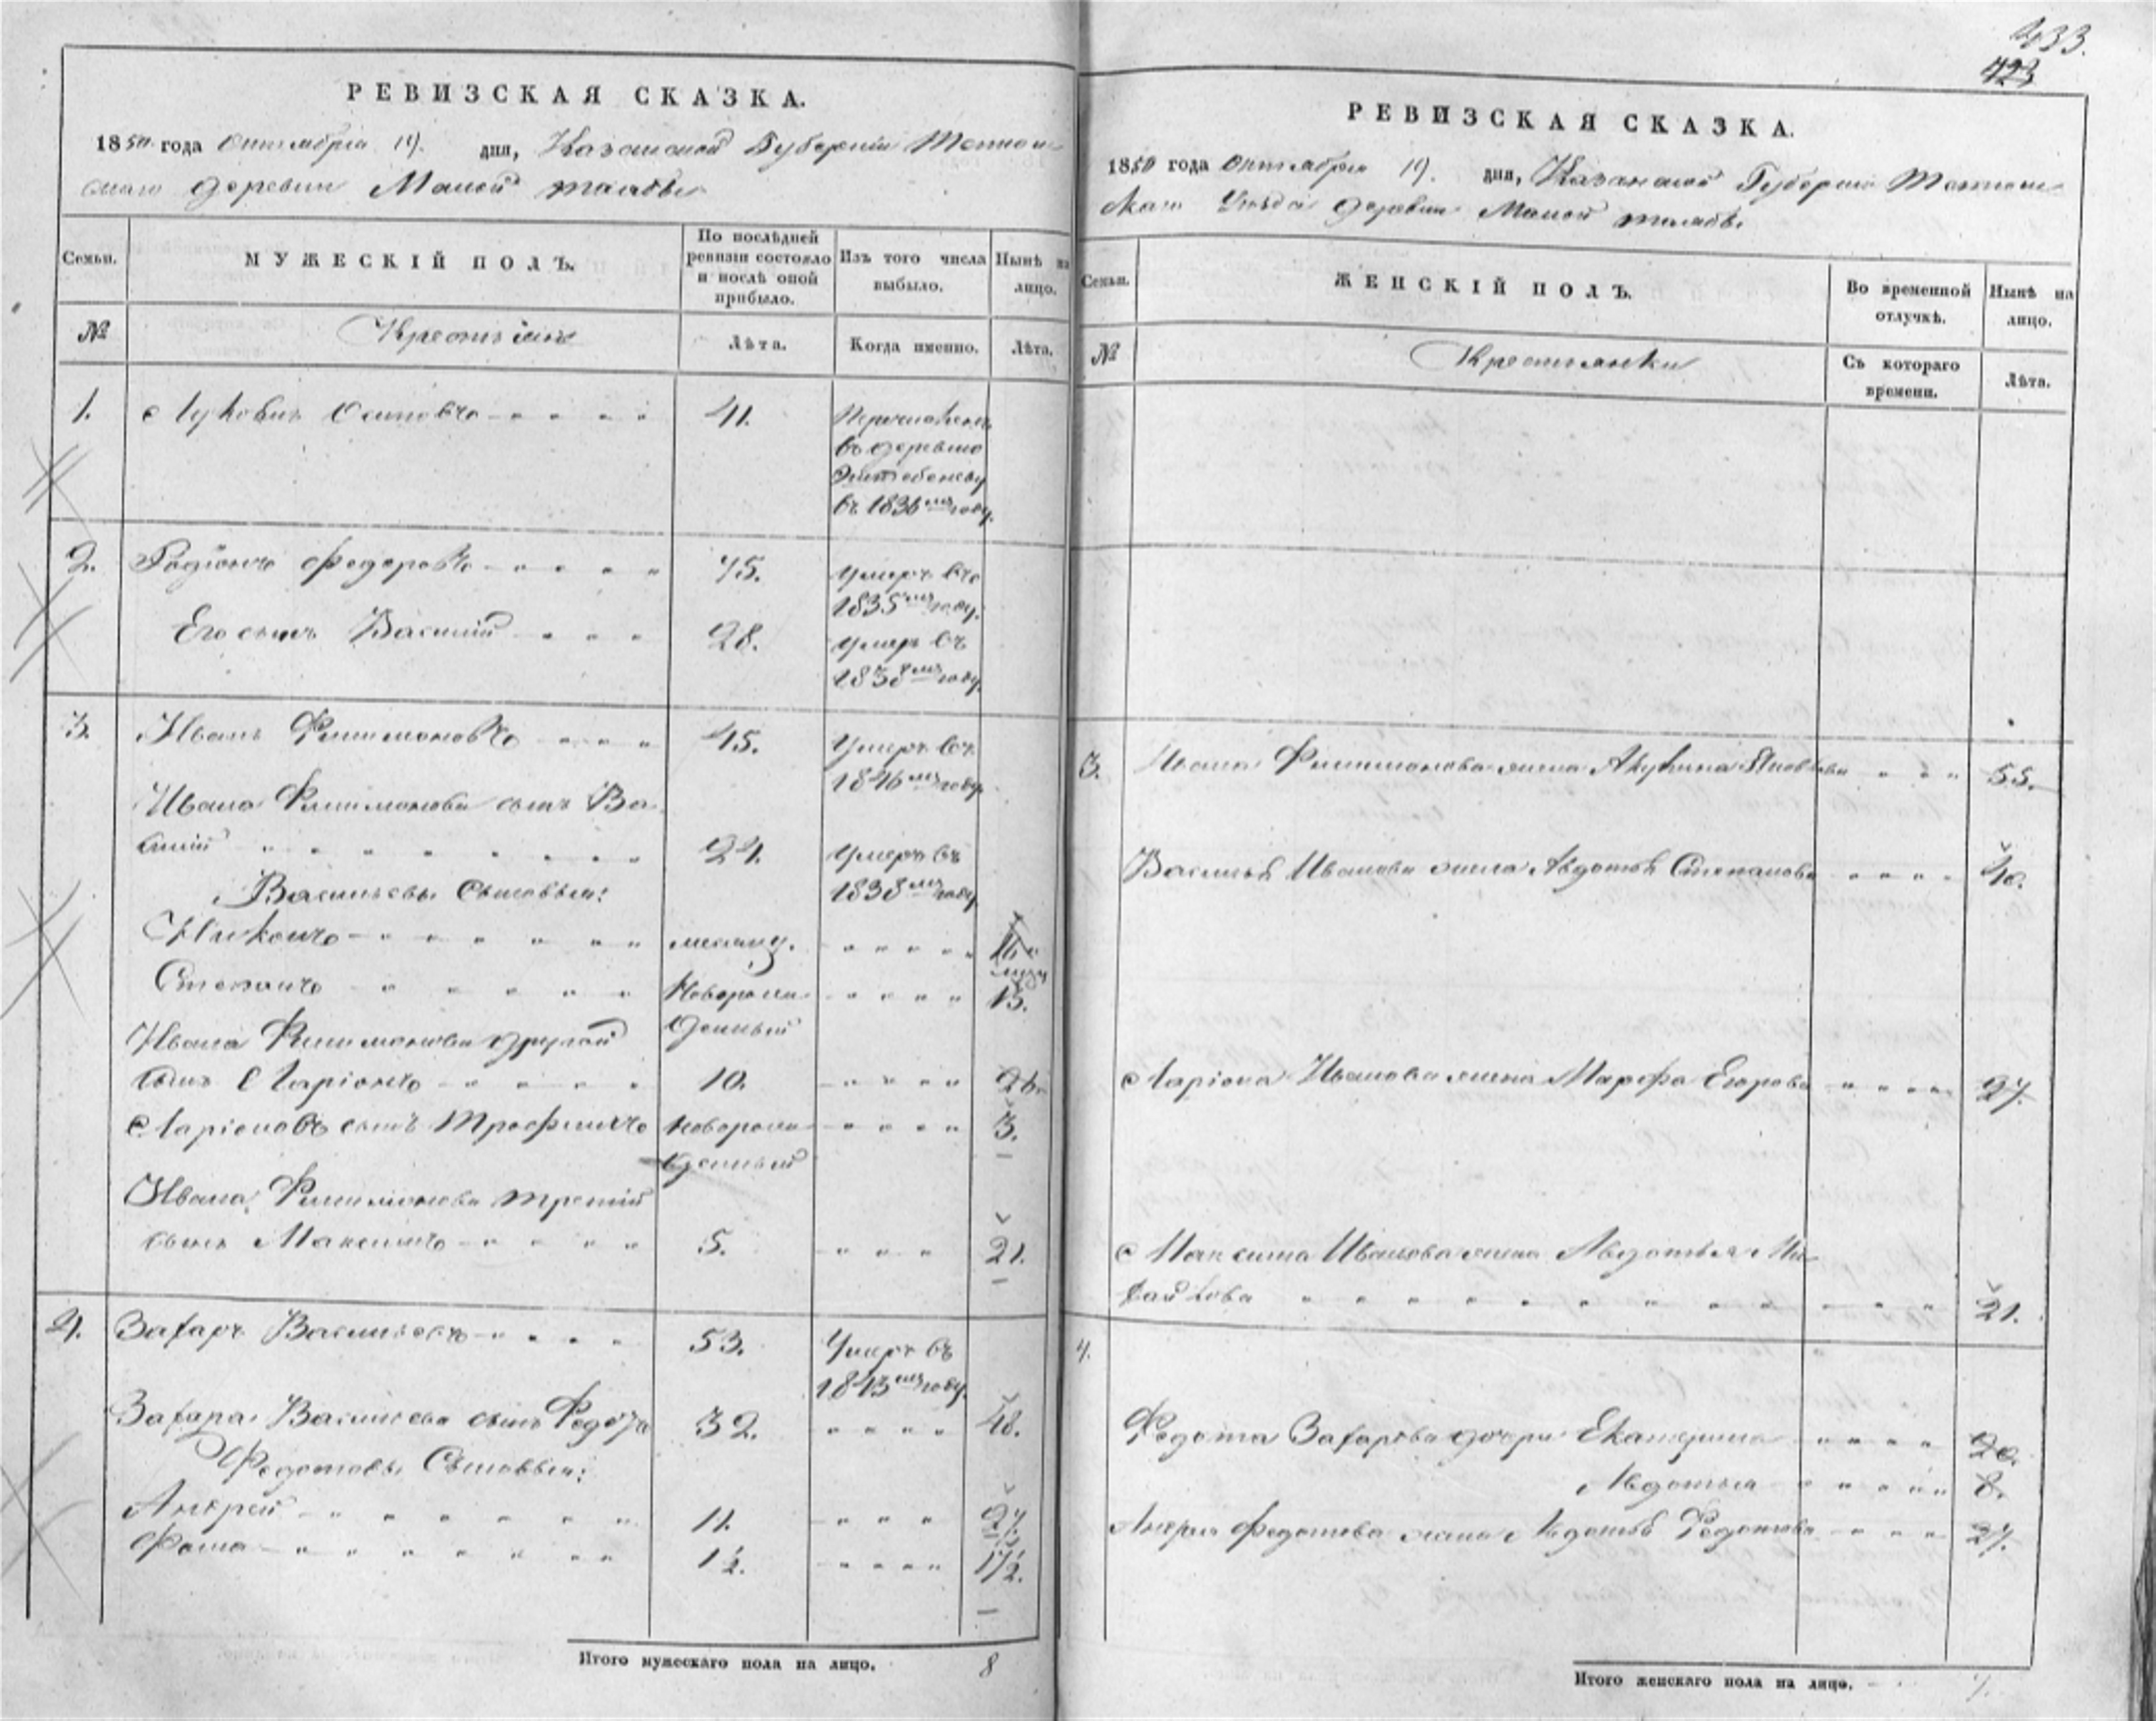 433.
423
РЕВИЗСКАЯ СКАЗКА.
1850 года Октября 19. дня, Казанской Губернии
деревни Малой
Семьи.
МУЖЕСКІЙ ПОЛЪ.
По послѣдней ревизіи состояло и послѣ оной прибыло.
Изъ того числа выбыло.
Нынѣ на лицо.
№
Крестьянъ
Лѣта.
Когда именно.
Лѣта.
1. Осиповъ 41. Перечисленъ
въ деревню
въ 1836мъ году.
2. Родіонъ Федоровъ 75. Умеръ въ
1835мъ году.
Его сынъ Василій 28. Умеръ въ
1838мъ году.
3. Иванъ Филимоновъ 45. Умеръ въ
1846мъ году
Ивана Филимонова сынъ Ва-
силій 24. Умеръ въ
1838мъ году
Васильевы Сыновья:
Никонъ 16
Степанъ Новорож- 15.
денный
Ивана Филимонова другой
сынъ Ларіонъ 10. 26.
Ларіоновъ сынъ Трофимъ Новорож- 3.
денный
Ивана Филимонова третій
сынъ Максимъ 5. 21.
4. Захаръ Васильевъ 53. Умеръ въ
1843мъ году.
Захара Васильева сынъ Федотъ 32. 48.
Федотовы Сыновья:
Андрей 11. 27.
Фома 1½. 17½.
Итого мужескаго пола на лицо. 8
РЕВИЗСКАЯ СКАЗКА.
1850 года Октября 19. дня, Казанской Губерніи
скаго Уѣзда деревни Малой
Семьи.
ЖЕНСКІЙ ПОЛЪ.
Во временной отлучкѣ.
Нынѣ на лицо.
№
Крестьянки
Съ котораго времени.
Лѣта.
3. Ивана Филимонова жена Акулина 55.
Василья Иванова жена Авдотья Степанова 40.
Ларіона Иванова жена Марфа Егорова 27.
Максима Иванова жена Авдотья Ми-
хайлова 21.
4.
Федота Захарова дочери Екатерина 20.
Авдотья 8.
Андрея Федотова жена Авдотья Федотова 27.
Итого женскаго пола на лицо. 7.